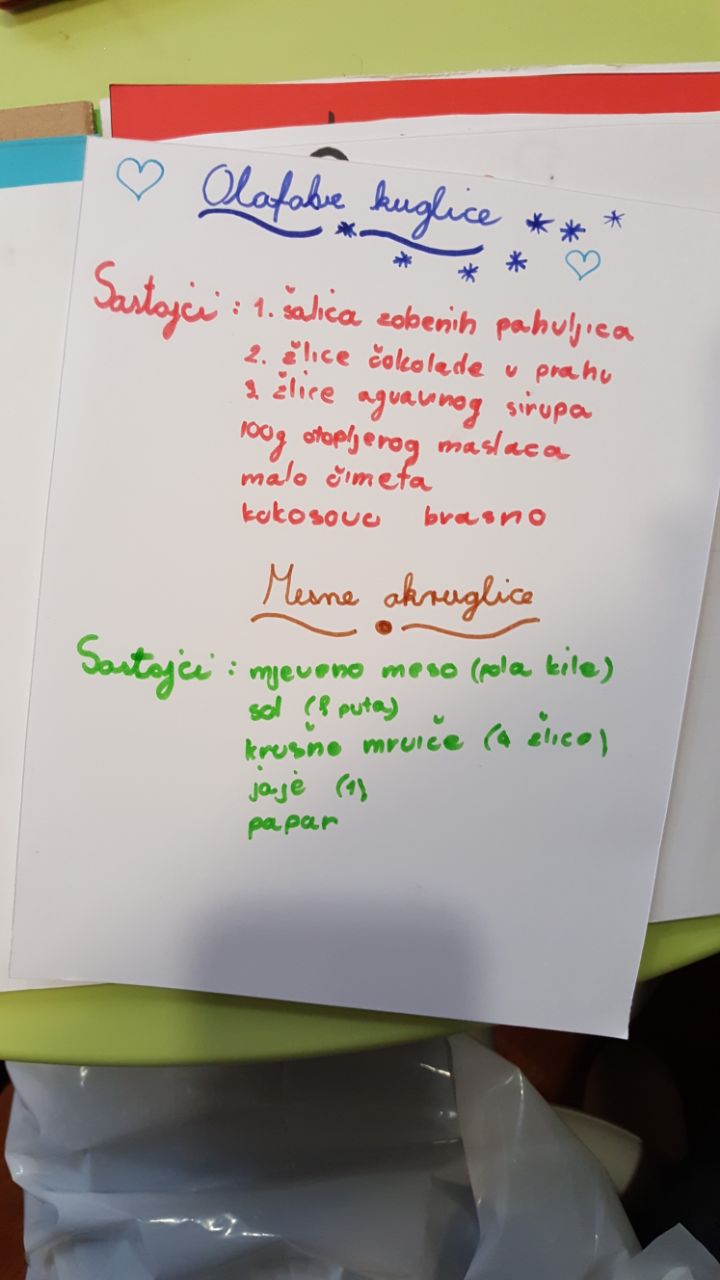 Olafove kuglice
Sastojci : 1. šalica zobenih pahuljica
2. žlice čokolade u prahu
3. žlice agavinog sirupa
100g otopljenog maslaca
malo čimeta
kokosovo brasno
Mesne okruglice
Sastojci : mjeveno meso (pola kile)
sol (8 puta)
krušne mrviče (4 žlice)
jaje (1)
papar